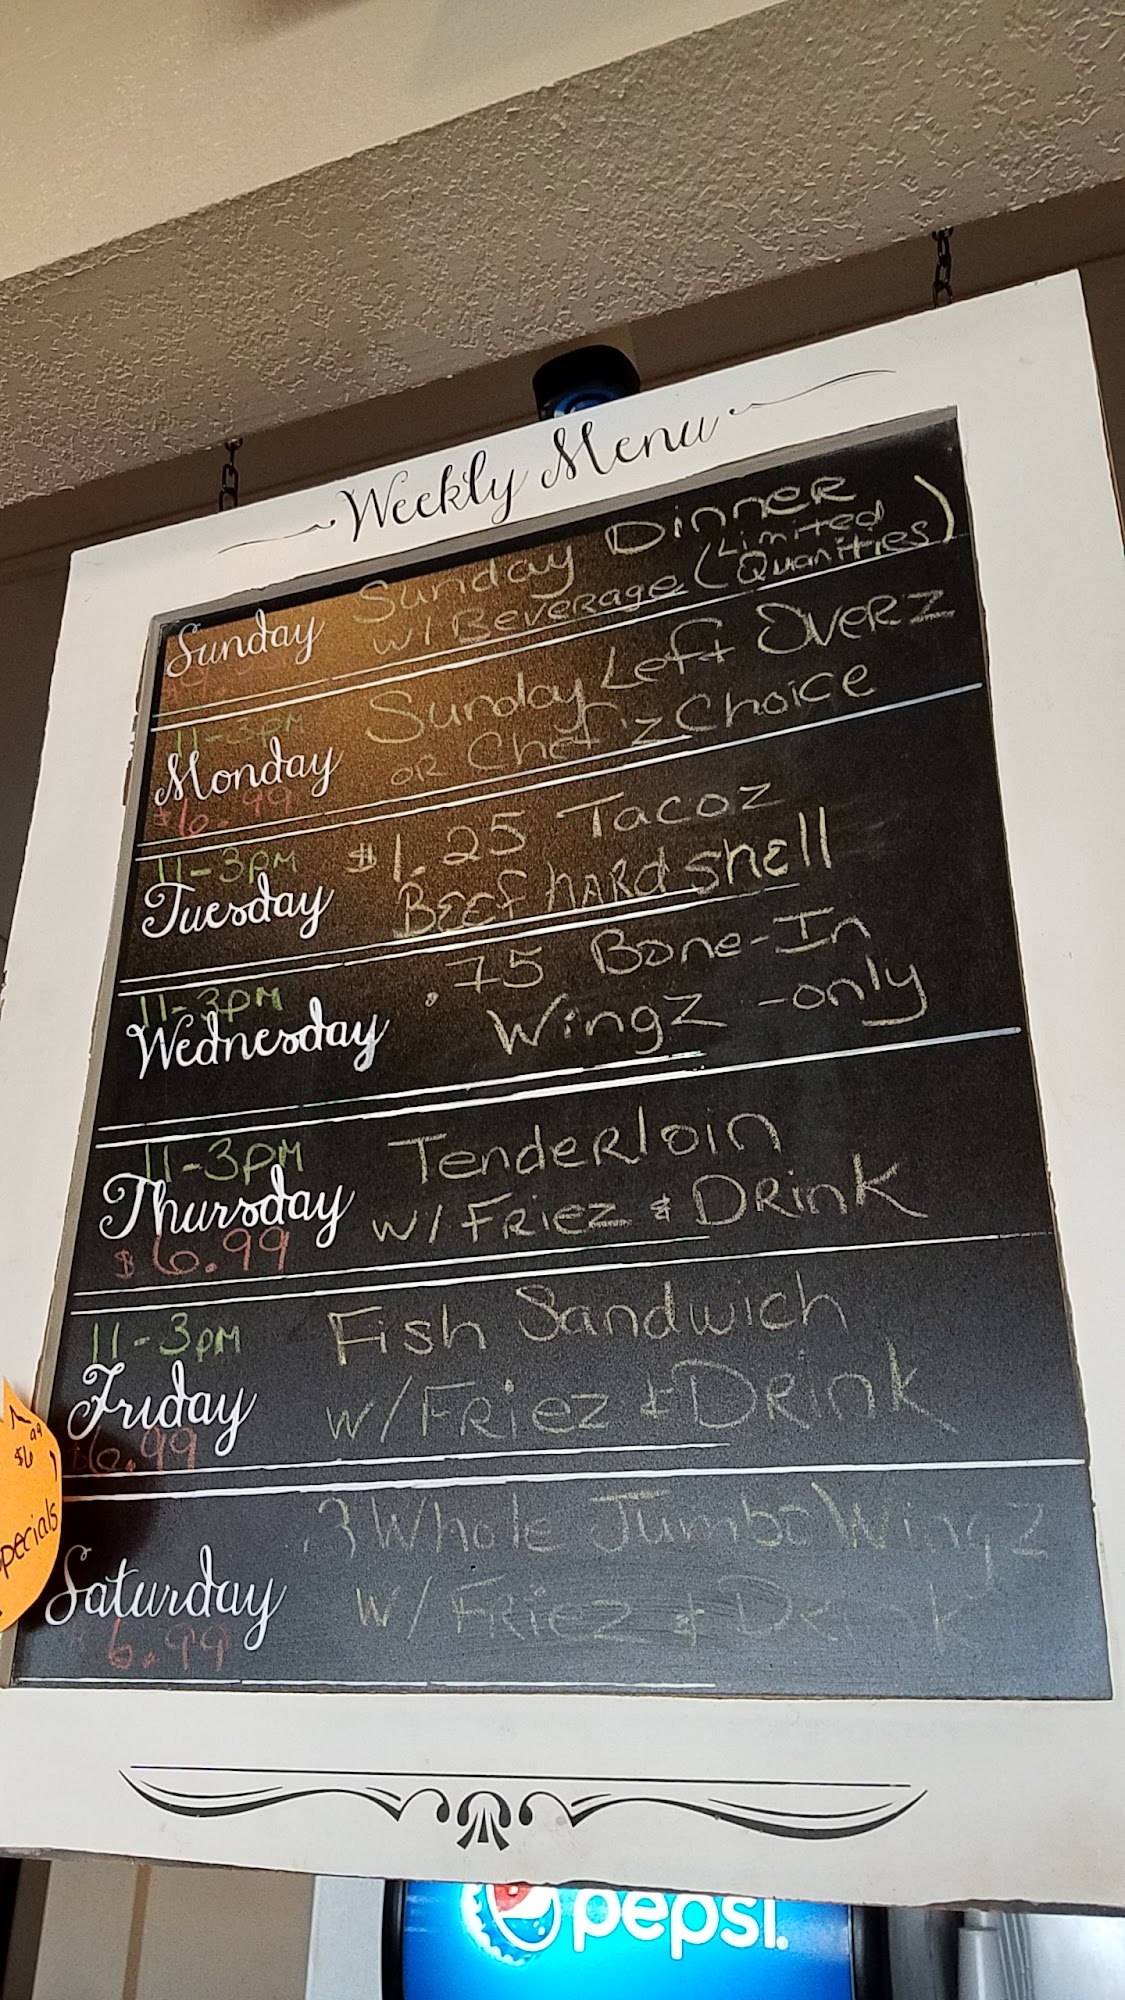 Weekly Menu
Sunday Dinner
Sunday w/ Beverage (Limited Quanities)
11-3pm Sunday Left OverZ
Monday or Chef'z Choice
$6.99
11-3pm $1.25 Tacoz
Tuesday Beef hard shell
11-3pm .75 Bone-In
Wednesday Wingz -only
11-3pm Tenderloin
Thursday w/ Friez & Drink
$6.99
11-3pm Fish Sandwich
Friday w/ Friez & Drink
$6.99
3 Whole Jumbo Wingz
Saturday w/ Friez & Drink
$6.99
$6.99
specials
pepsi.